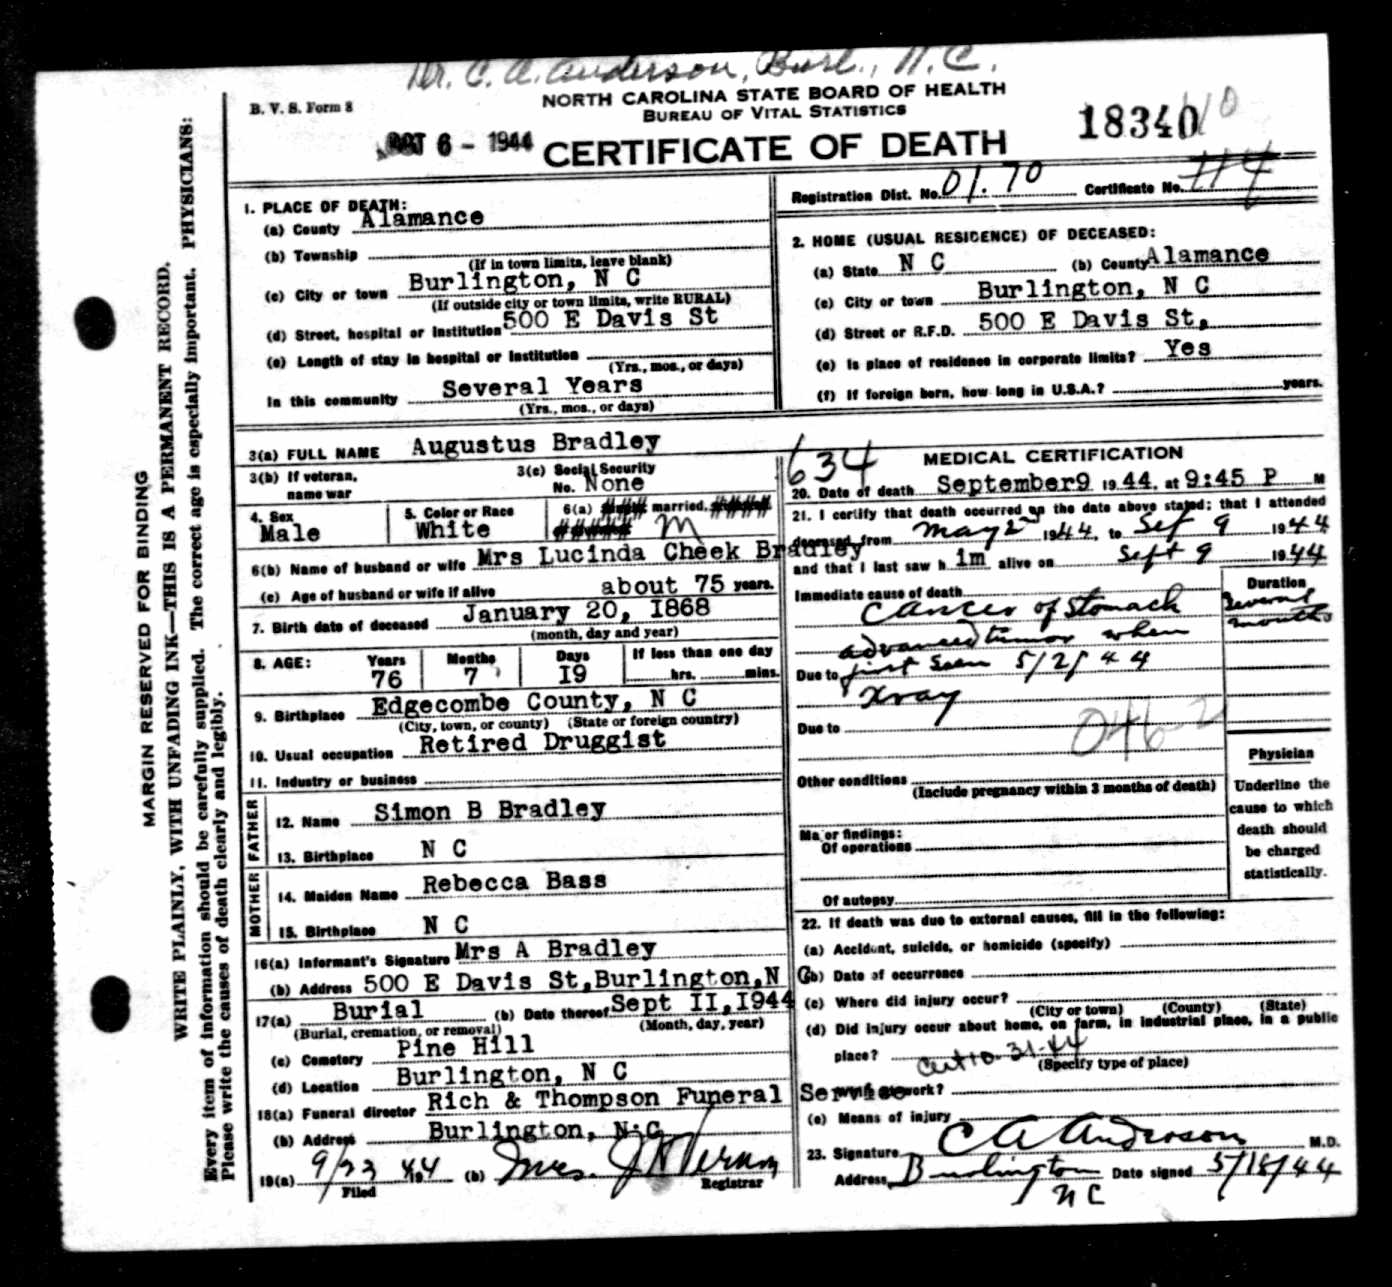 Dr. C. A. Anderson, Burl., N. C.
B. V. S. Form 8
NORTH CAROLINA STATE BOARD OF HEALTH
BUREAU OF VITAL STATISTICS
6 - 1944
CERTIFICATE OF DEATH
18340
Registration Dist. No. 01.70 Certificate No. 114
MARGIN RESERVED FOR BINDING
WRITE PLAINLY, WITH UNFADING INK—THIS IS A PERMANENT RECORD.
Every item of information should be carefully supplied. The correct age is especially important. PHYSICIANS:
Please write the causes of death clearly and legibly.
1. PLACE OF DEATH:
(a) County Alamance
(b) Township
(If in town limits, leave blank)
(c) City or town Burlington, N C
(If outside city or town limits, write RURAL)
(d) Street, hospital or institution 500 E Davis St
(e) Length of stay in hospital or institution
(Yrs., mos., or days)
In this community Several Years
(Yrs., mos., or days)
2. HOME (USUAL RESIDENCE) OF DECEASED:
(a) State N C (b) County Alamance
(c) City or town Burlington, N C
(d) Street or R.F.D. 500 E Davis St,
(e) Is place of residence in corporate limits? Yes
(f) If foreign born, how long in U.S.A.? years.
3(a) FULL NAME Augustus Bradley
3(b) If veteran, name war
3(c) Social Security No. None
4. Sex Male
5. Color or Race White
6(a) married, M
6(b) Name of husband or wife Mrs Lucinda Cheek Bradley
(c) Age of husband or wife if alive about 75 years.
7. Birth date of deceased January 20, I868
(month, day and year)
8. AGE: Years 76 Months 7 Days I9 If less than one day hrs. mins.
9. Birthplace Edgecombe County, N C
(City, town, or county) (State or foreign country)
10. Usual occupation Retired Druggist
11. Industry or business
FATHER
12. Name Simon B Bradley
13. Birthplace N C
MOTHER
14. Maiden Name Rebecca Bass
15. Birthplace N C
16(a) Informant's Signature Mrs A Bradley
(b) Address 500 E Davis St,Burlington,N C
17(a) Burial (b) Date thereof Sept II,I944
(Burial, cremation, or removal) (Month, day, year)
(c) Cemetery Pine Hill
(d) Location Burlington, N C
18(a) Funeral director Rich & Thompson Funeral Service
(b) Address Burlington, N.C
19(a) 9/23 1944 (b) Mrs. J H Vernon
Filed Registrar
634
MEDICAL CERTIFICATION
20. Date of death September9 1944, at 9:45 P M
21. I certify that death occurred on the date above stated; that I attended
deceased from May 2nd 1944, to Sep 9 1944
and that I last saw h im alive on Sept 9 1944
Immediate cause of death Duration
cancer of stomach Several months
advanced tumor when
Due to first seen 5/2/44
Xray
Due to
046-2
Other conditions
(Include pregnancy within 3 months of death)
Major findings:
Of operations
Of autopsy
Physician
Underline the
cause to which
death should
be charged
statistically.
22. If death was due to external causes, fill in the following:
(a) Accident, suicide, or homicide (specify)
(b) Date of occurrence
(c) Where did injury occur?
(City or town) (County) (State)
(d) Did injury occur about home, on farm, in industrial place, in a public
place?
10-31-44
(Specify type of place)
work?
(e) Means of injury
23. Signature C A Anderson M.D.
Address Burlington NC Date signed 5/18/44